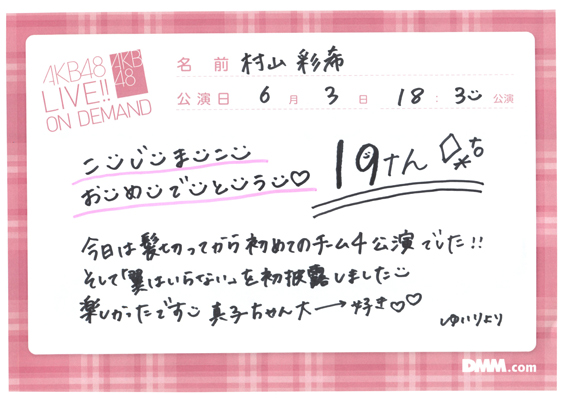 AKB48
LIVE!!
ON DEMAND
AKB
48
名前 村山 彩希
公演日 6月 3日 18:30 公演
こじまこ
おめでとう♡
19さん
今日は髪切ってから初めてのチーム4公演でした!!
そして「翼はいらない」を初披露しました
楽しかったです 真子ちゃん大→好き♡♡
ゆいりより
DMM.com